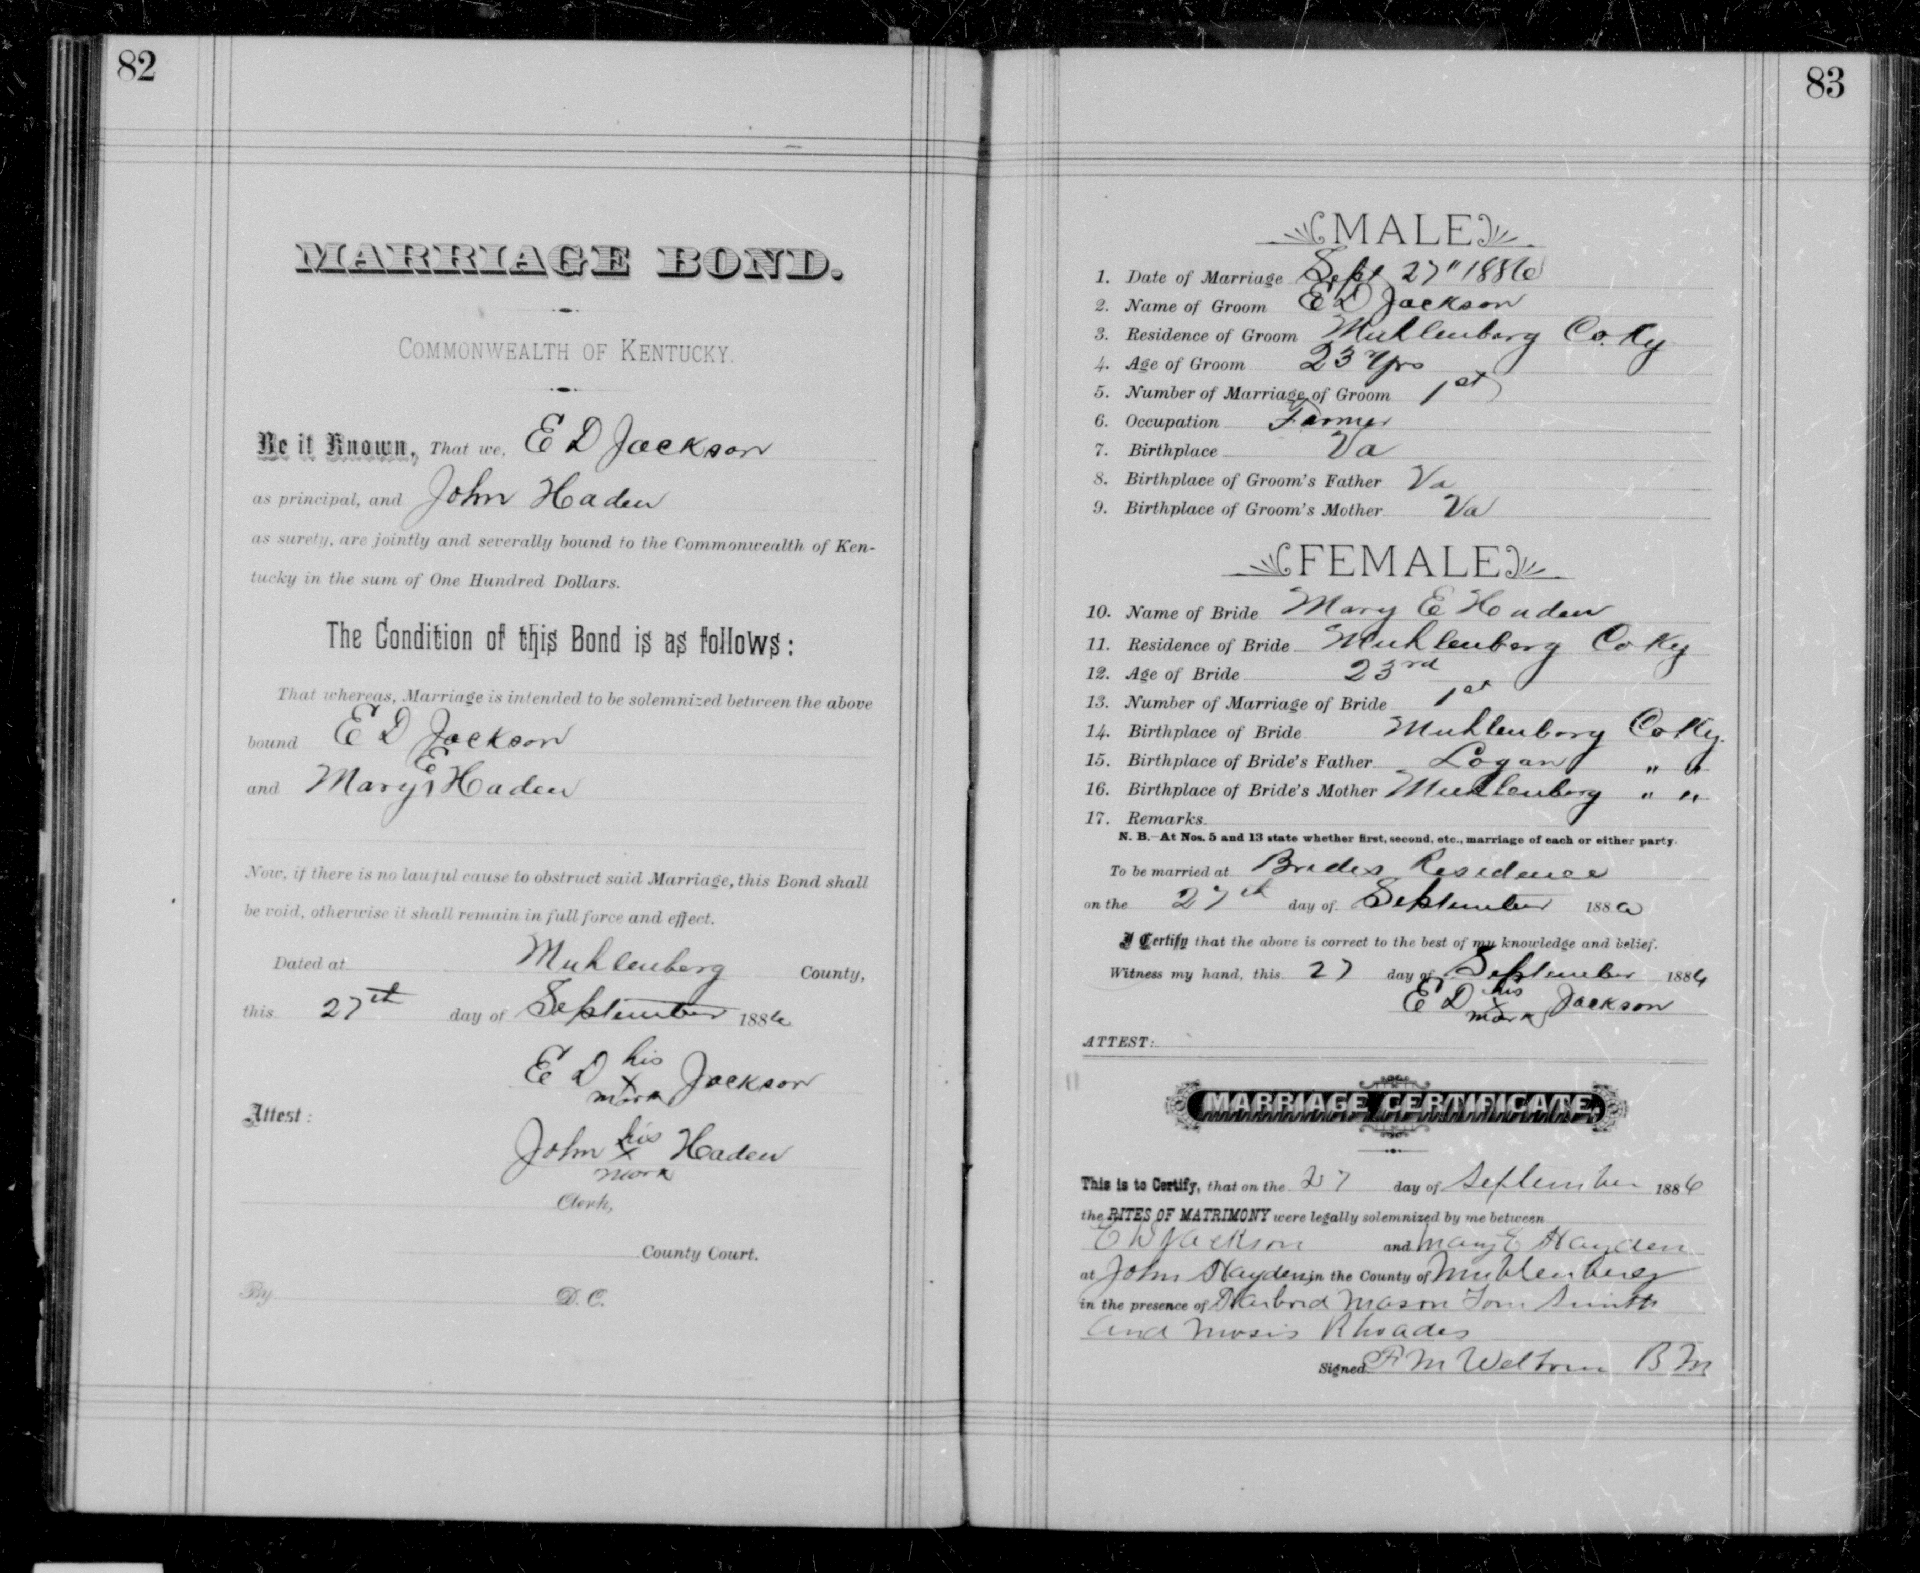 82
MARRIAGE BOND.
COMMONWEALTH OF KENTUCKY.
Be it Known, That we, E D Jackson
as principal, and John Haden
as surety, are jointly and severally bound to the Commonwealth of Ken-
tucky in the sum of One Hundred Dollars.
The Condition of this Bond is as follows:
That whereas, Marriage is intended to be solemnized between the above
bound E D Jackson
and Mary E Haden
Now, if there is no lawful cause to obstruct said Marriage, this Bond shall
be void, otherwise it shall remain in full force and effect.
Dated at Muhlenberg County,
this 27th day of September 1886
E D his x mark Jackson
Attest:
John his x mark Haden
Clerk,
County Court.
By D. C.
83
MALE
1. Date of Marriage Sept 27" 1886
2. Name of Groom E D Jackson
3. Residence of Groom Muhlenberg Co. Ky
4. Age of Groom 23 yrs
5. Number of Marriage of Groom 1st
6. Occupation Farmer
7. Birthplace Va
8. Birthplace of Groom's Father Va
9. Birthplace of Groom's Mother Va
FEMALE
10. Name of Bride Mary E Haden
11. Residence of Bride Muhlenberg Co Ky
12. Age of Bride 23rd
13. Number of Marriage of Bride 1st
14. Birthplace of Bride Muhlenberg Co Ky.
15. Birthplace of Bride's Father Logan " "
16. Birthplace of Bride's Mother Muhlenberg " "
17. Remarks.
N. B.—At Nos. 5 and 13 state whether first, second, etc., marriage of each or either party.
To be married at Brides Residence
on the 27th day of September 1886
I Certify that the above is correct to the best of my knowledge and belief.
Witness my hand, this 27 day of September 1886
E D his x mark Jackson
ATTEST:
MARRIAGE CERTIFICATE.
This is to Certify, that on the 27 day of September 1886
the RITES OF MATRIMONY were legally solemnized by me between
E D Jackson and Mary E Hayden
at John Haydens in the County of Muhlenberg
in the presence of Mason Tom Smith
and Mosis Rhoades
Signed F M Welborn B M